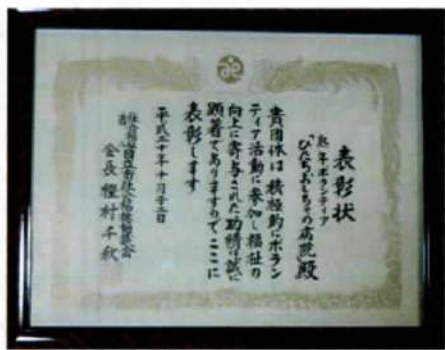 表彰状
熟年ボランティア
"ひたちおもちゃの病院"殿
貴団体は積極的にボラン
ティア活動に参加し福祉の
向上に寄与された功績は誠に
顕著でありますので、ここに
表彰します
平成二十年十月二十五日
社会福祉法人日立市社会福祉協議会
会長 村千秋